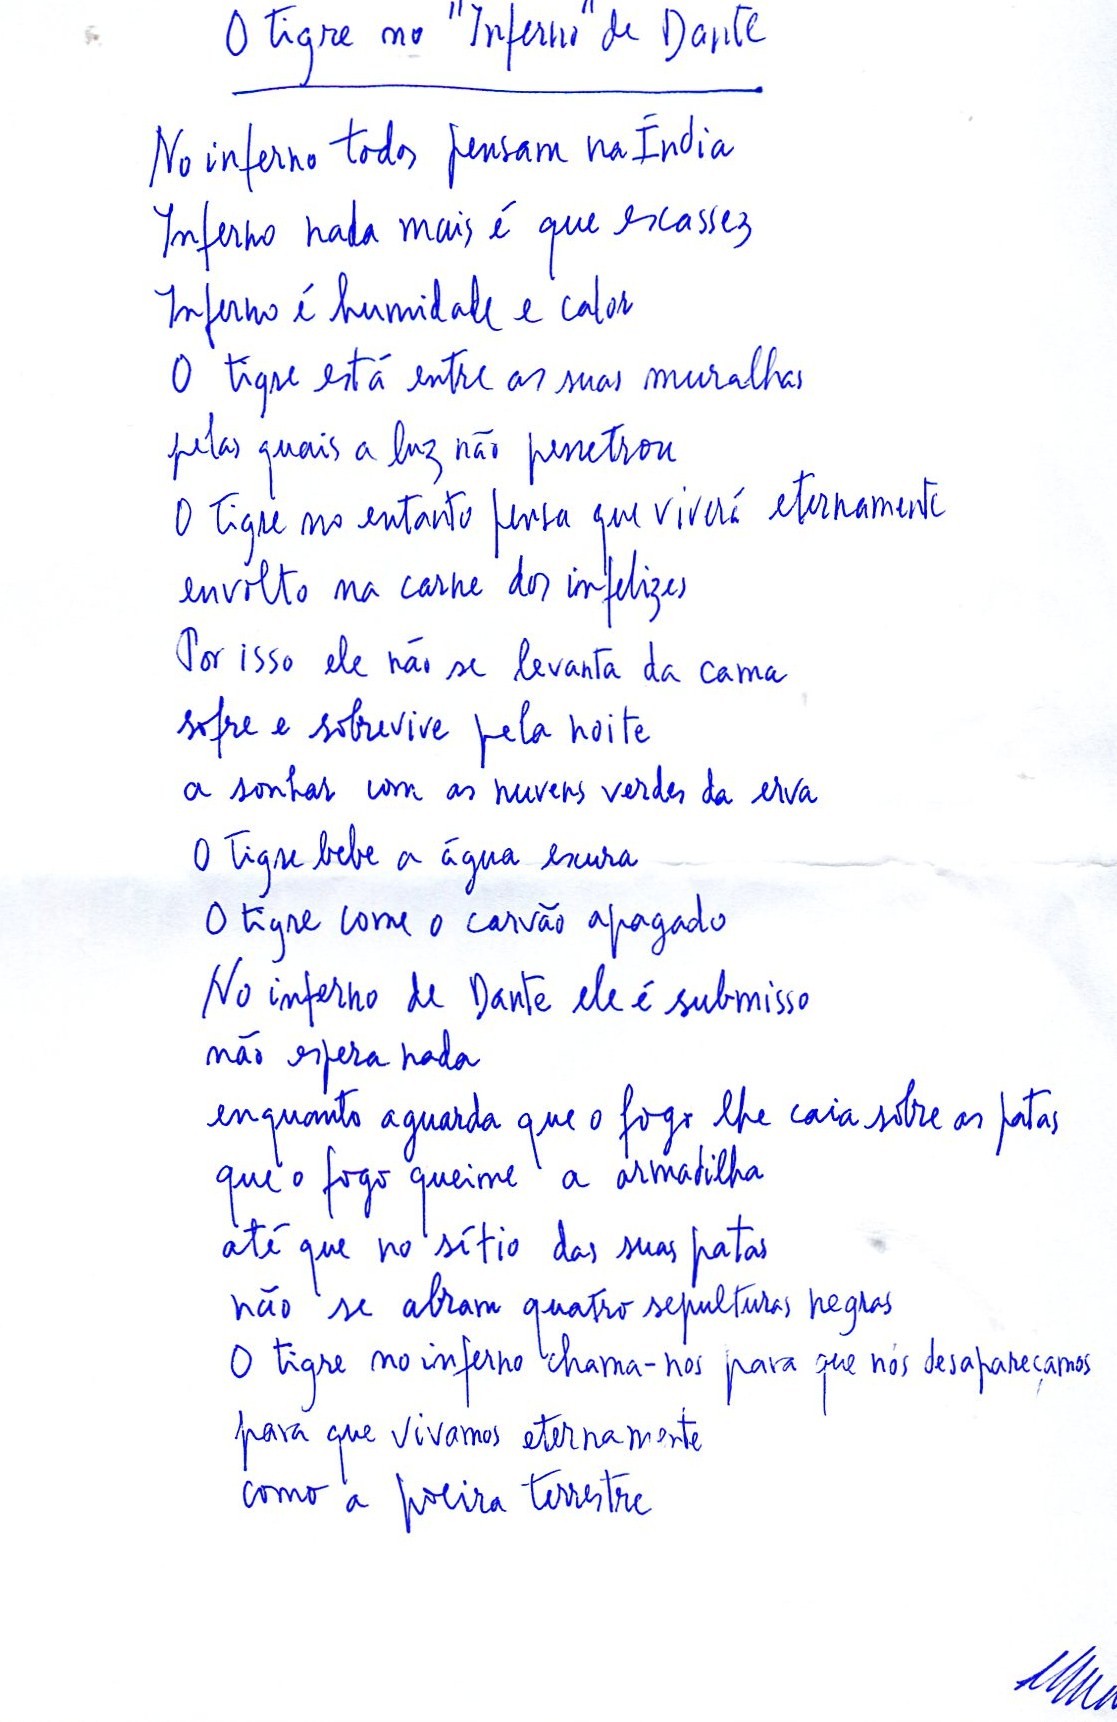 O tigre no "Inferno" de Dante
No inferno todos pensam na Índia
Inferno nada mais é que escassez
Inferno é humidade e calor
O tigre está entre as suas muralhas
pelas quais a luz não penetrou
O tigre no entanto pensa que viverá eternamente
envolto na carne dos infelizes
Por isso ele não se levanta da cama
sofre e sobrevive pela noite
a sonhar com as nuvens verdes da erva
O tigre bebe a água escura
O tigre come o carvão apagado
No inferno de Dante ele é submisso
não espera nada
enquanto aguarda que o fogo lhe caia sobre as patas
que o fogo queime a armadilha
até que no sítio das suas patas
não se abram quatro sepulturas negras
O tigre no inferno chama-nos para que nós desapareçamos
para que vivamos eternamente
como a poeira terrestre